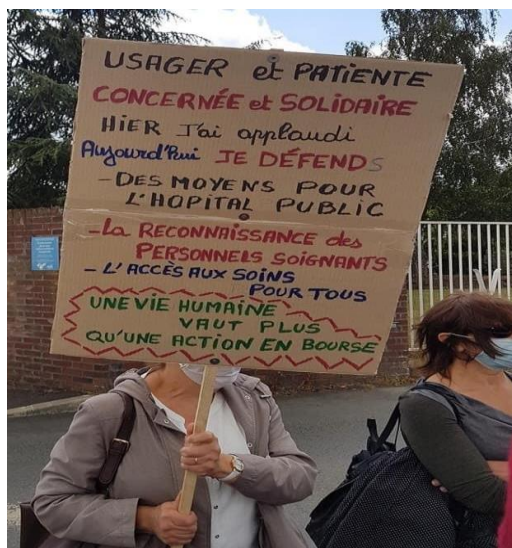 USAGER et PATIENTE
CONCERNÉE et SOLIDAIRE
HIER J'ai applaudi
Aujourd'hui JE DÉFENDS
- DES MOYENS POUR
L'HOPITAL PUBLIC
- La RECONNAISSANCE des
PERSONNELS SOIGNANTS
- L'ACCÈS AUX SOINS
POUR TOUS
UNE VIE HUMAINE
VAUT PLUS
QU'UNE ACTION EN BOURSE